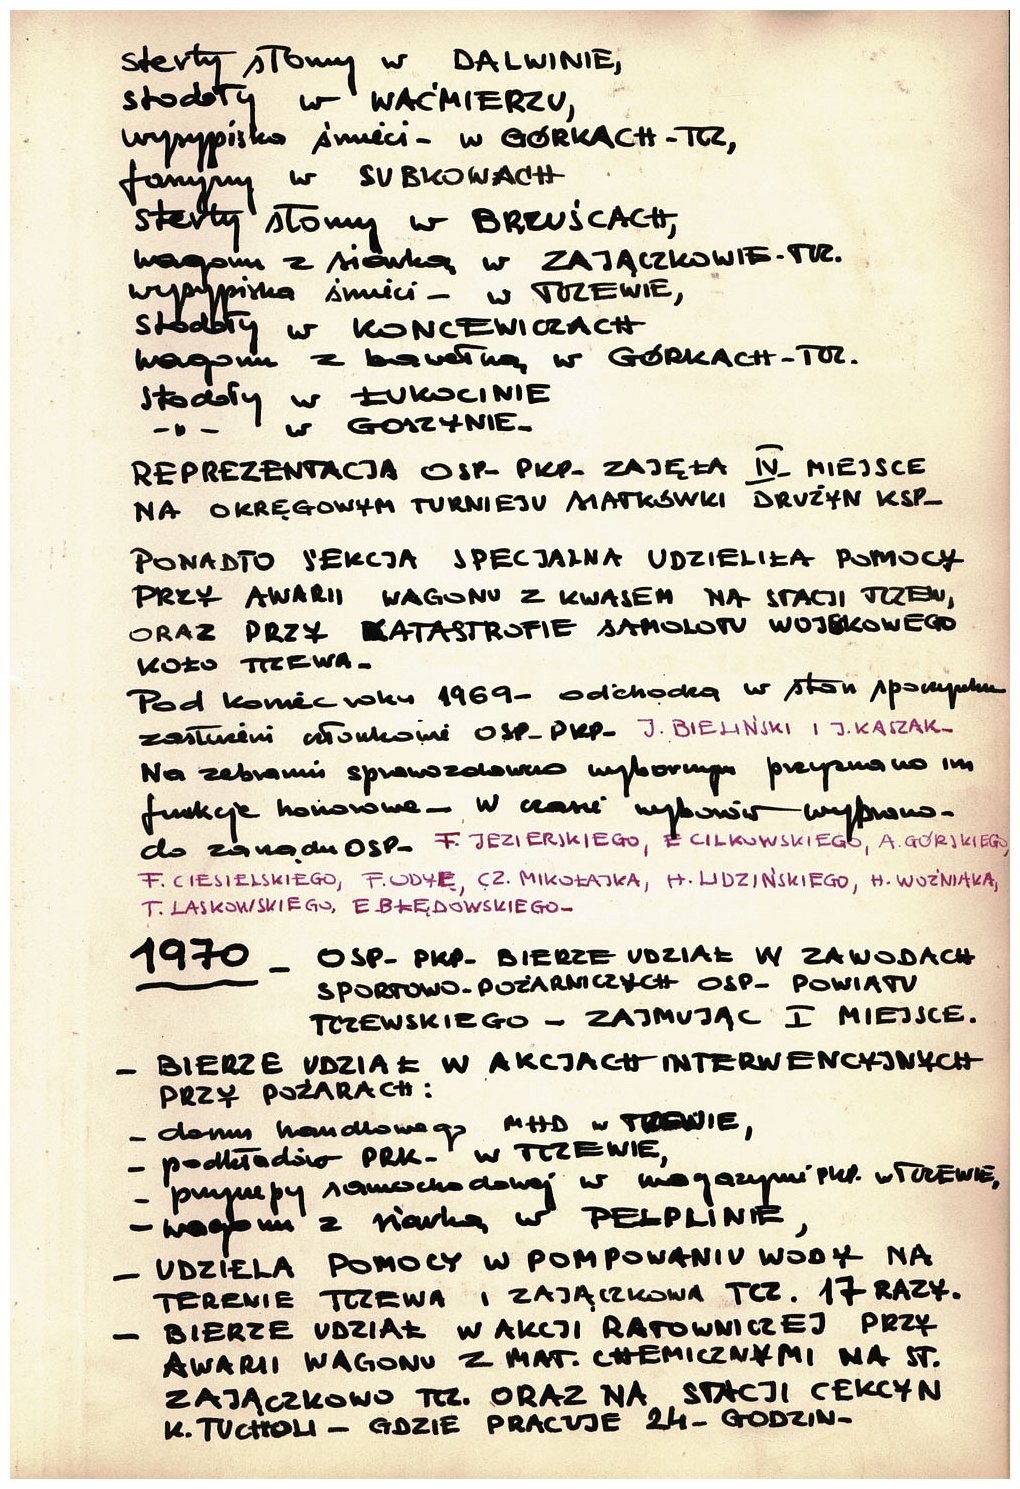 sterty słomy w DALWINIE,
stodoły w WAĆMIERZU,
wysypiska śmieci - w GÓRKACH - TCZ,
w SUBKOWACH
sterty słomy w BRZUŚCACH,
wagonu z siarką w ZAJĄCZKOWIE - TCZ.
wysypiska śmieci - w TCZEWIE,
stodoły w KONCEWICZACH
wagonu z bawełną w GÓRKACH - TCZ.
stodoły w ŁUKOCINIE
-"- w GOSZYNIE -
REPREZENTACJA OSP - PKP - ZAJĘŁA IV - MIEJSCE
NA OKRĘGOWYM TURNIEJU SIATKÓWKI DRUŻYN KSP -
PONADTO SEKCJA SPECJALNA UDZIELIŁA POMOCY
PRZY AWARII WAGONU Z KWASEM NA STACJI TCZEW,
ORAZ PRZY KATASTROFIE SAMOLOTU WOJSKOWEGO
KOŁO TCZEWA -
Pod koniec roku 1969 - odchodzą w stan spoczynku
zasłużeni członkowie OSP - PKP - J. BIELIŃSKI I J. KASZAK -
Na zebraniu sprawozdawczo wyborczym przyznano im
funkcje honorowe - W czasie wyborów wybrano -
do zarządu OSP - F. JEZIERSKIEGO, E CILKOWSKIEGO, A. GÓRSKIEGO,
F. CIESIELSKIEGO, F. ODYĘ, CZ. MIKOŁAJKA, H. LIDZIŃSKIEGO, H. WOŹNIAKA,
T. LASKOWSKIEGO, E BŁĘDOWSKIEGO -
1970 - OSP - PKP - BIERZE UDZIAŁ W ZAWODACH
SPORTOWO - POŻARNICZYCH OSP - POWIATU
TCZEWSKIEGO - ZAJMUJĄC I MIEJSCE.
- BIERZE UDZIAŁ W AKCJACH INTERWENCYJNYCH
PRZY POŻARACH:
- domu handlowego MHD w TCZEWIE,
- podkładów PRK - w TCZEWIE,
- przyczepy samochodowej w magazynie PKP. w TCZEWIE,
- wagonu z siarką w PELPLINIE,
- UDZIELA POMOCY W POMPOWANIU WODY NA
TERENIE TCZEWA I ZAJĄCZKOWA TCZ. 17 RAZY.
- BIERZE UDZIAŁ W AKCJI RATOWNICZEJ PRZY
AWARII WAGONU Z MAT. CHEMICZNYMI NA ST.
ZAJĄCZKOWO TCZ. ORAZ NA STACJI CEKCYN
K. TUCHOLI - GDZIE PRACUJE 24 - GODZIN -